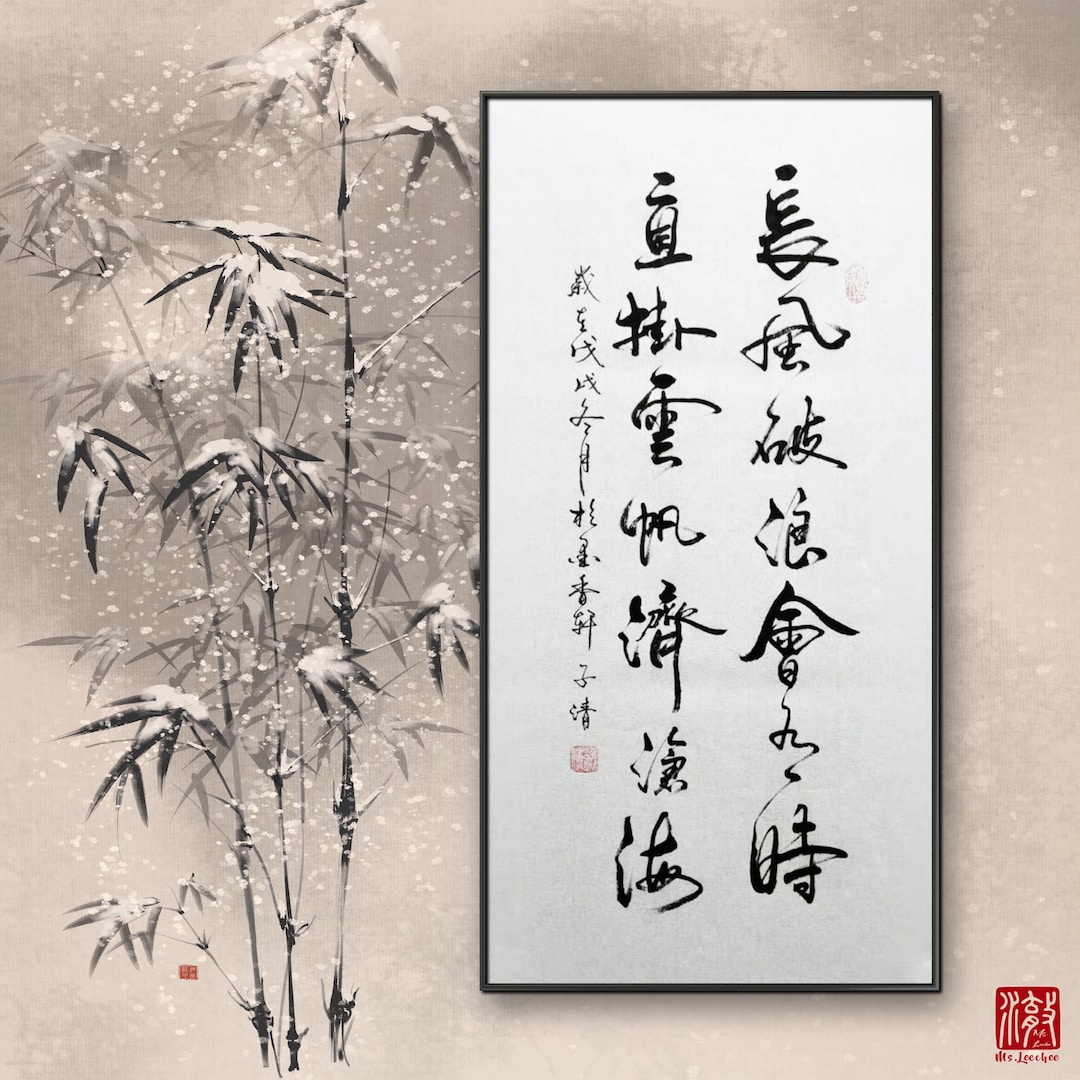 長風破浪會有時
直掛雲帆濟滄海
歲在戊戌冬月於墨香軒 子清
Ms.Leechee